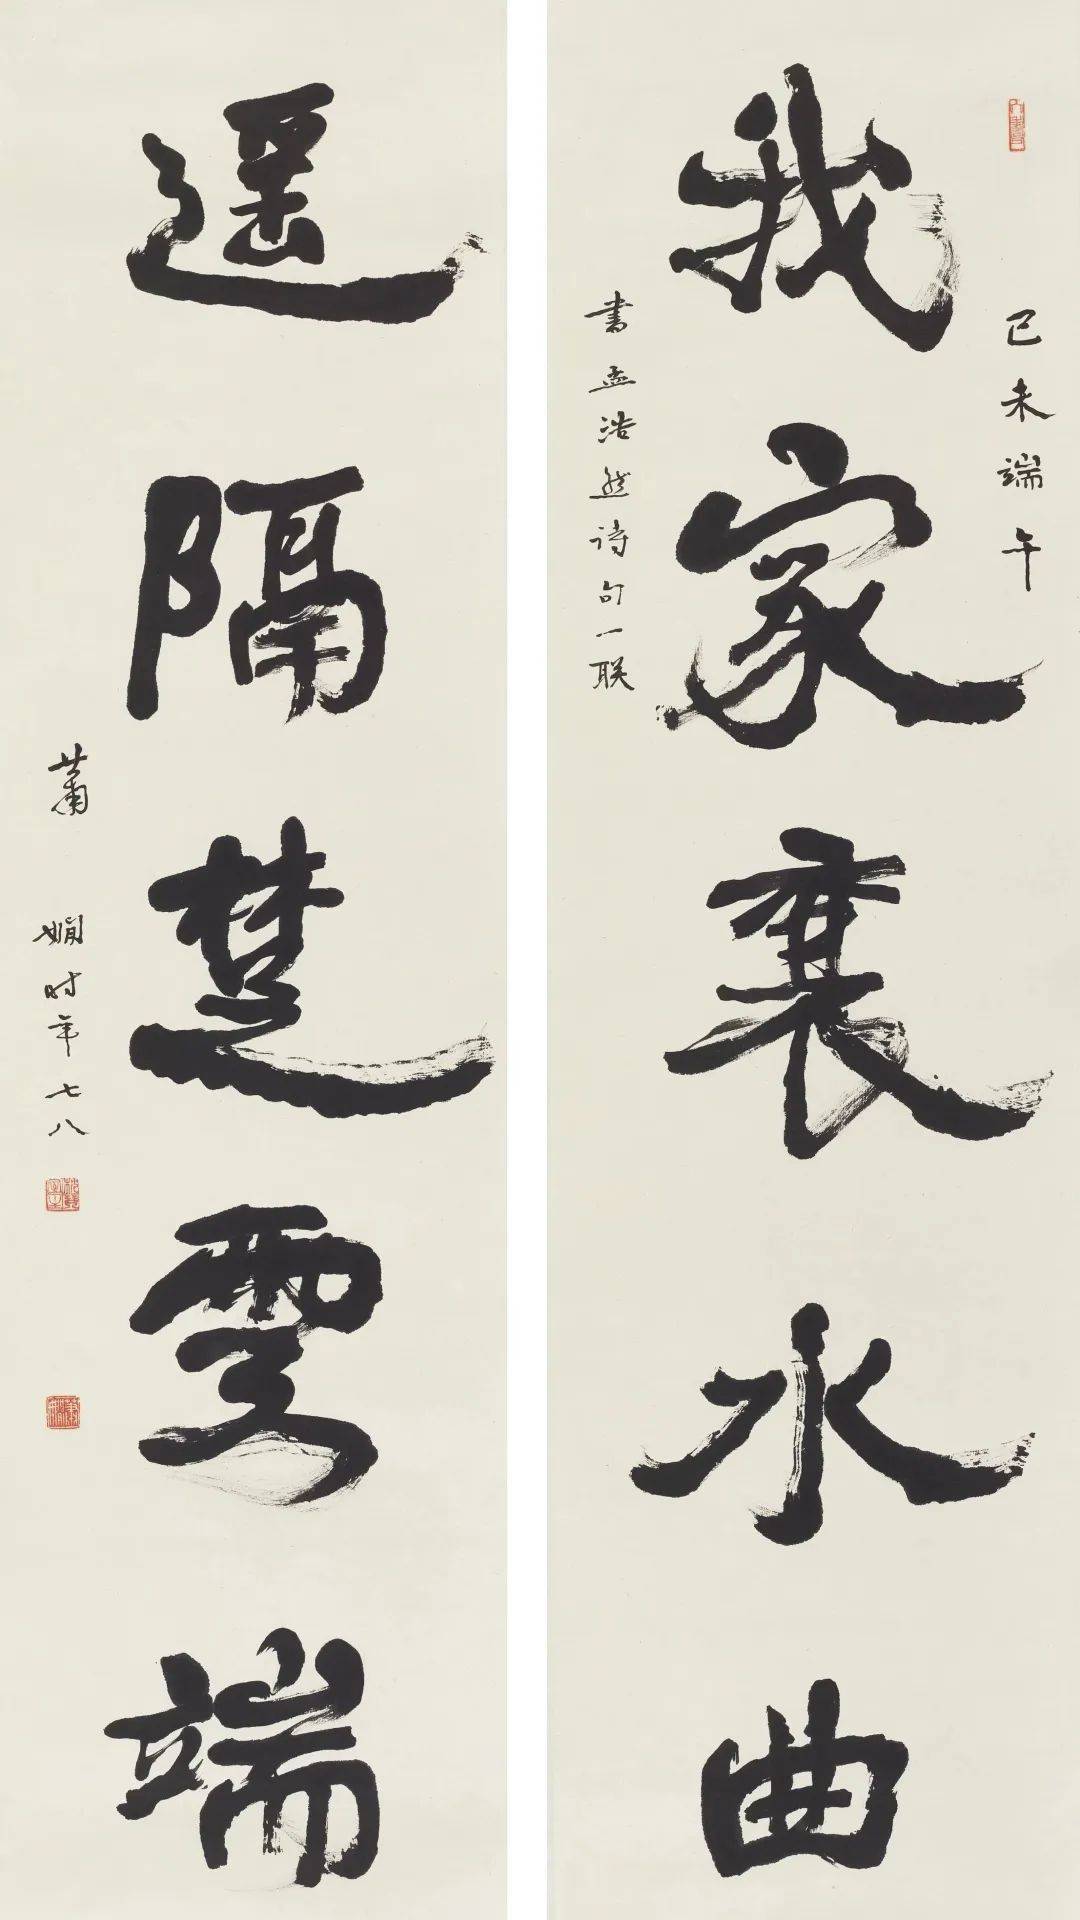 己未端午
我家襄水曲
書孟浩然诗句一联
遥隔楚雲端
蕭嫻时年七八